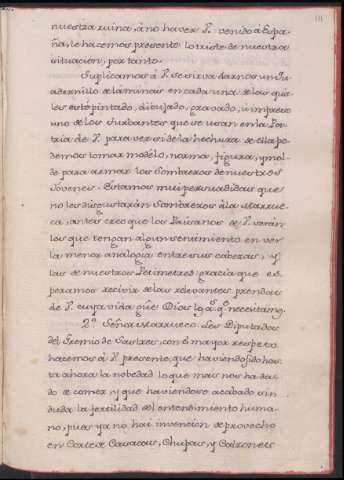 nuestra ruina, à no haver V. venido a Espa-
ña, le hacemos presente lo triste de nuestra
situacion, por tanto.
Suplicamos à V. se sirva darnos un Qu-
adernillo de laminas en cada una de las qua-
les este pintado, dibujado, gravado, ò impreso
uno de los Turbantes que se usan en la Pa-
tria de V. para ver si de la hechura de ellos po-
demos tomar modélo, norma, figura, y mol-
de para armar los Sombreros de nuestros
Jovenes. Estamos mui persuadidos que
no les disgustarán Sombreros à la Marrue-
ca, antes creo que los Paisanos de V. verán
los que tengan algun sentimiento en ver
la menor analogia entre sus cabezas, y
las de nuestros Petimetres; gracia que es-
peramos recivir de las relevantes prendas
de V. cuya vida güe. Dios
2.º Señor Marrueco. Los Diputados
del Gremio de Sastres, con el mayor respeto
hacemos à V. presente, que haviendo sido has-
ta ahora la nobedad lo que mas nos ha da-
do de comer, y que haviendose acabado sin
duda la fertilidad del entendimiento huma-
no, pues ya no hai invencion de provecho
en Cortes de Casacas, Chupas, y Calzones